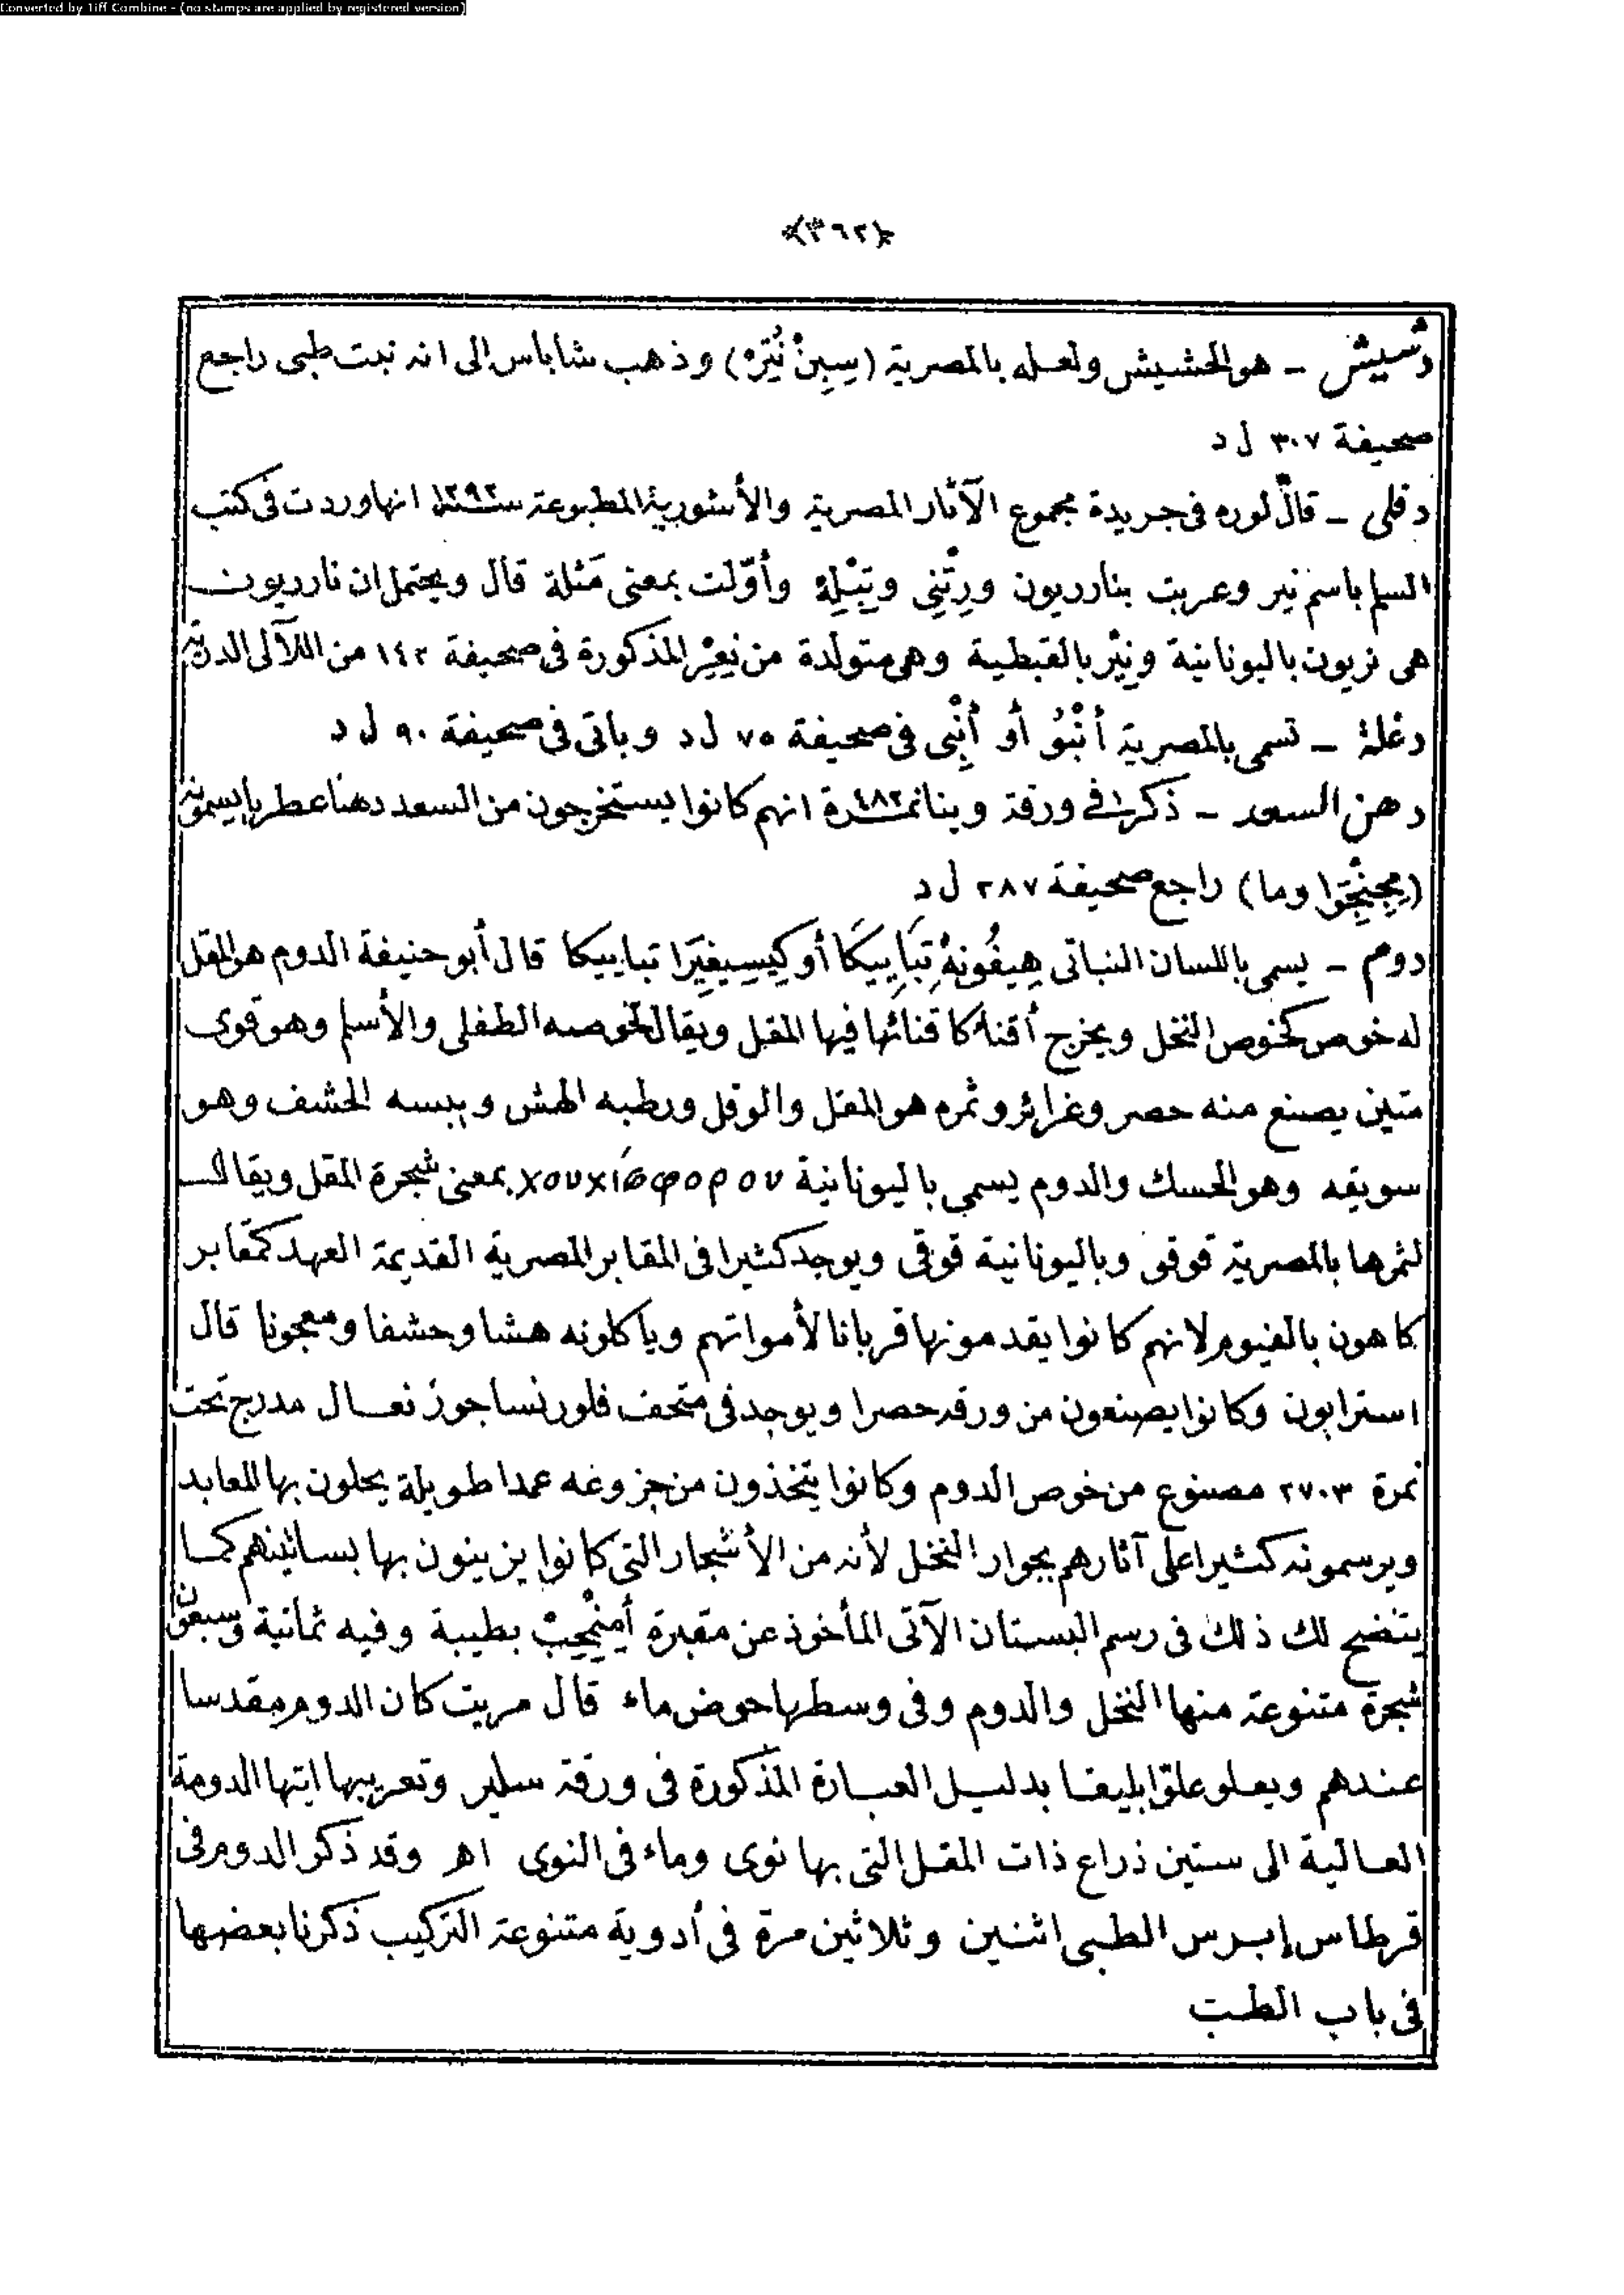 Converted by Tiff Combine - (no stamps are applied by registered version)
﴿٣٦٢﴾
دشيش – هو الحشيش ولعله بالمصرية (سِبِنْ نُتِرْه) وذهب شاباس الى انه نبت طبى راجع
صحيفة ٣٠٧ ل د
دفلى – قال لوره فى جريدة مجموع الآثار المصرية والأشورية المطبوعة انها وردت فى كتب
السلم باسم نير وعربت بنارديون ورِتْنِى وأوّلت بمعنى مَثلة قال ويحتمل ان نارديون
هى نريون باليونانية ونِيْر بالقبطية وهى متولدة من المذكورة فى صحيفة ١٤٢ من اللآلى الدرية
دغلة – تسمى بالمصرية أنْبُو أو أنْبِى فى صحيفة ٧٥ ل د وياتى فى صحيفة ٩٠ ل د
دهن السعد – ذكر فى ورقة وينا نمرة ٤٨٢ انهم كانوا يستخرجون من السعد دهنا عطريا يسمونه
( وما) راجع صحيفة ٢٨٧ ل د
دوم – يسمى باللسان النباتى هِيفُونِهْ تِبَايِيكَا أو كِيسِيفِيَرا تباييكا قال أبو حنيفة الدوم هو المقل
له خوص كخوص النخل ويخرج أقناء كاقنائها فيها المقل ويقال لخوصه الطفلى والأسلم وهو قوى
متين يصنع منه حصر وغرائر وثمره هو المقل والوقل ورطبه الهش ويبسه الحشف وهو
سويقه وهو الحسك والدوم يسمى باليونانية χουχιόφορου بمعنى شجرة المقل ويقال
لثمرها بالمصرية قوقو وباليونانية قوقى ويوجد كثيرا فى المقابر المصرية القديمة العهد كمقابر
كاهون بالفيوم لانهم كانوا يقدمونها قربانا لأمواتهم وياكلونه هشا وحشفا ومعجونا قال
استرابون وكانوا يصنعون من ورقه حصرا ويوجد فى متحف فلورنسا جوز نعال مدرج تحت
نمرة ٢٧٠٣ مصنوع من خوص الدوم وكانوا يتخذون من جزوغه عمدا طويلة يحلون بها المعابد
ويرسمونه كثيرا على آثارهم بجوار النخل لأنه من الأشجار التى كانوا يزينون بها بساتينهم كما
يتضح لك ذلك فى رسم البستان الآتى المأخوذ عن مقبرة أمِنْحِبْ بطيبة وفيه ثمانية وسبعون
شجرة متنوعة منها النخل والدوم وفى وسطها حوض ماء قال مريت كان الدوم مقدسا
عندهم ويعلو علوّا بليغا بدليل العبارة المذكورة فى ورقة سلير وتعريبها ايتها الدومة
العالية الى ستين ذراع ذات المقل التى بها نوى وماء فى النوى اهـ وقد ذكر الدوم فى
قرطاس إبرس الطبى اثنين وثلاثين مرة فى أدوية متنوعة التركيب ذكرنا بعضها
فى باب الطب